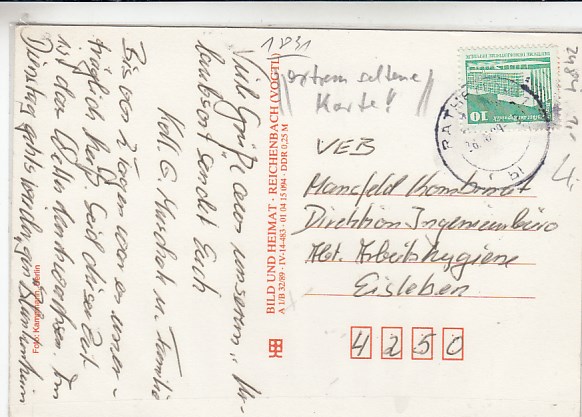 Viele Grüße aus unserem Ur-
laubsort sendet Euch
Koll. G. und Familie
Bis vor 2 Tagen war es uner-
träglich heiß. Seit dieser Zeit
ist das Wetter durchwachsen. Am
Dienstag gehts wieder gen
Foto: Kampmann, Berlin
BILD UND HEIMAT · REICHENBACH (VOGTL)
A 1/B 32/89 · IV-14-483 · 01 04 15 094 · DDR 0,25 M
1831
extrem seltene
Karte!!
2484
DEUTSCHE DEMOKRATISCHE REPUBLIK
10
RATHE
VEB
Mansfeld Kombinat
Direktion Ingenieurbüro
Abt. Arbeitshygiene
Eisleben
4250